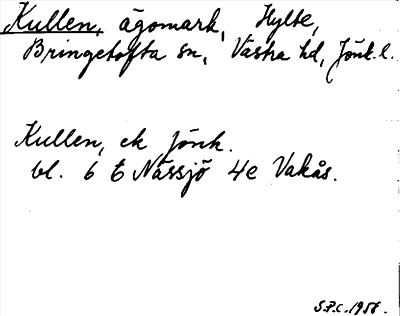 Kullen, ägomark, Hylte,
Bringetofta sn, Västra hd, Jönk. l.
Kullen, ek Jönk.
bl. 6 t Nässjö 4e Vakås.
S.P.C. 1958.